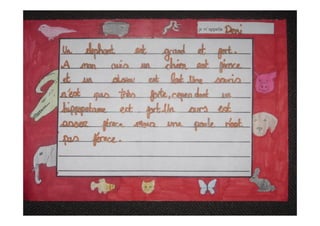 je m'appelle Deni
Un éléphant est grand et fort.
A mon avis un chien est féroce
et un oiseau est lent. Une souris
n'est pas très forte, cependant un
hippopotame est fort. Un ours est
assez féroce mais une poule n'est
pas féroce.